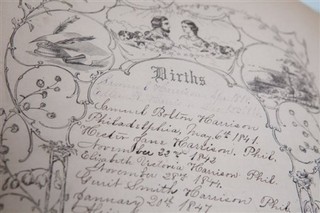 Births
Samuel Bolton Harrison
Philadelphia, May 6th 1841.
Hester Jane Harrison, Phil.
November 22nd 1842
Elizabeth Victoria Harrison Phil.
November 28th 1844.
Gerrit Smith Harrison Phil.
January 20th 1847